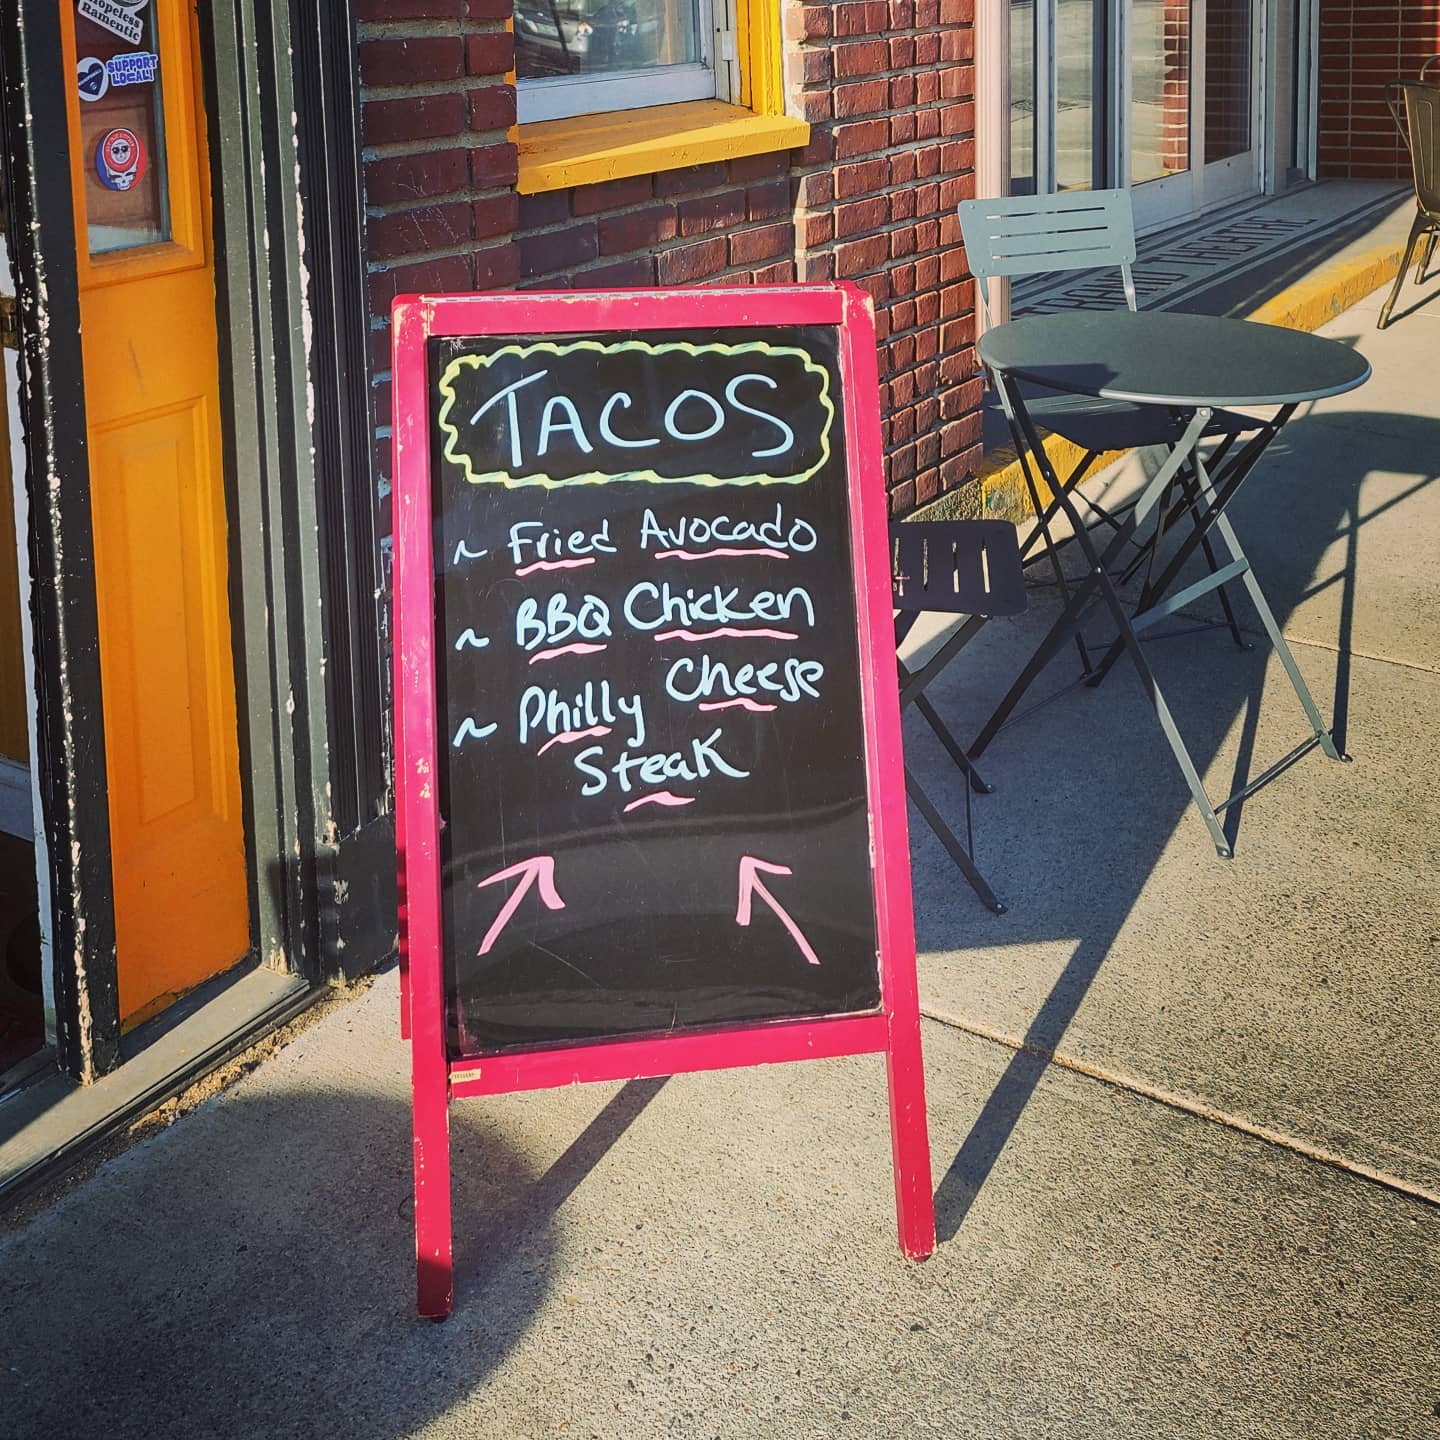 Hopeless
Ramentic
SUPPORT
LOCAL!
TACOS
~ Fried Avocado
~ BBQ Chicken
~ Philly Cheese
Steak
THEATRE